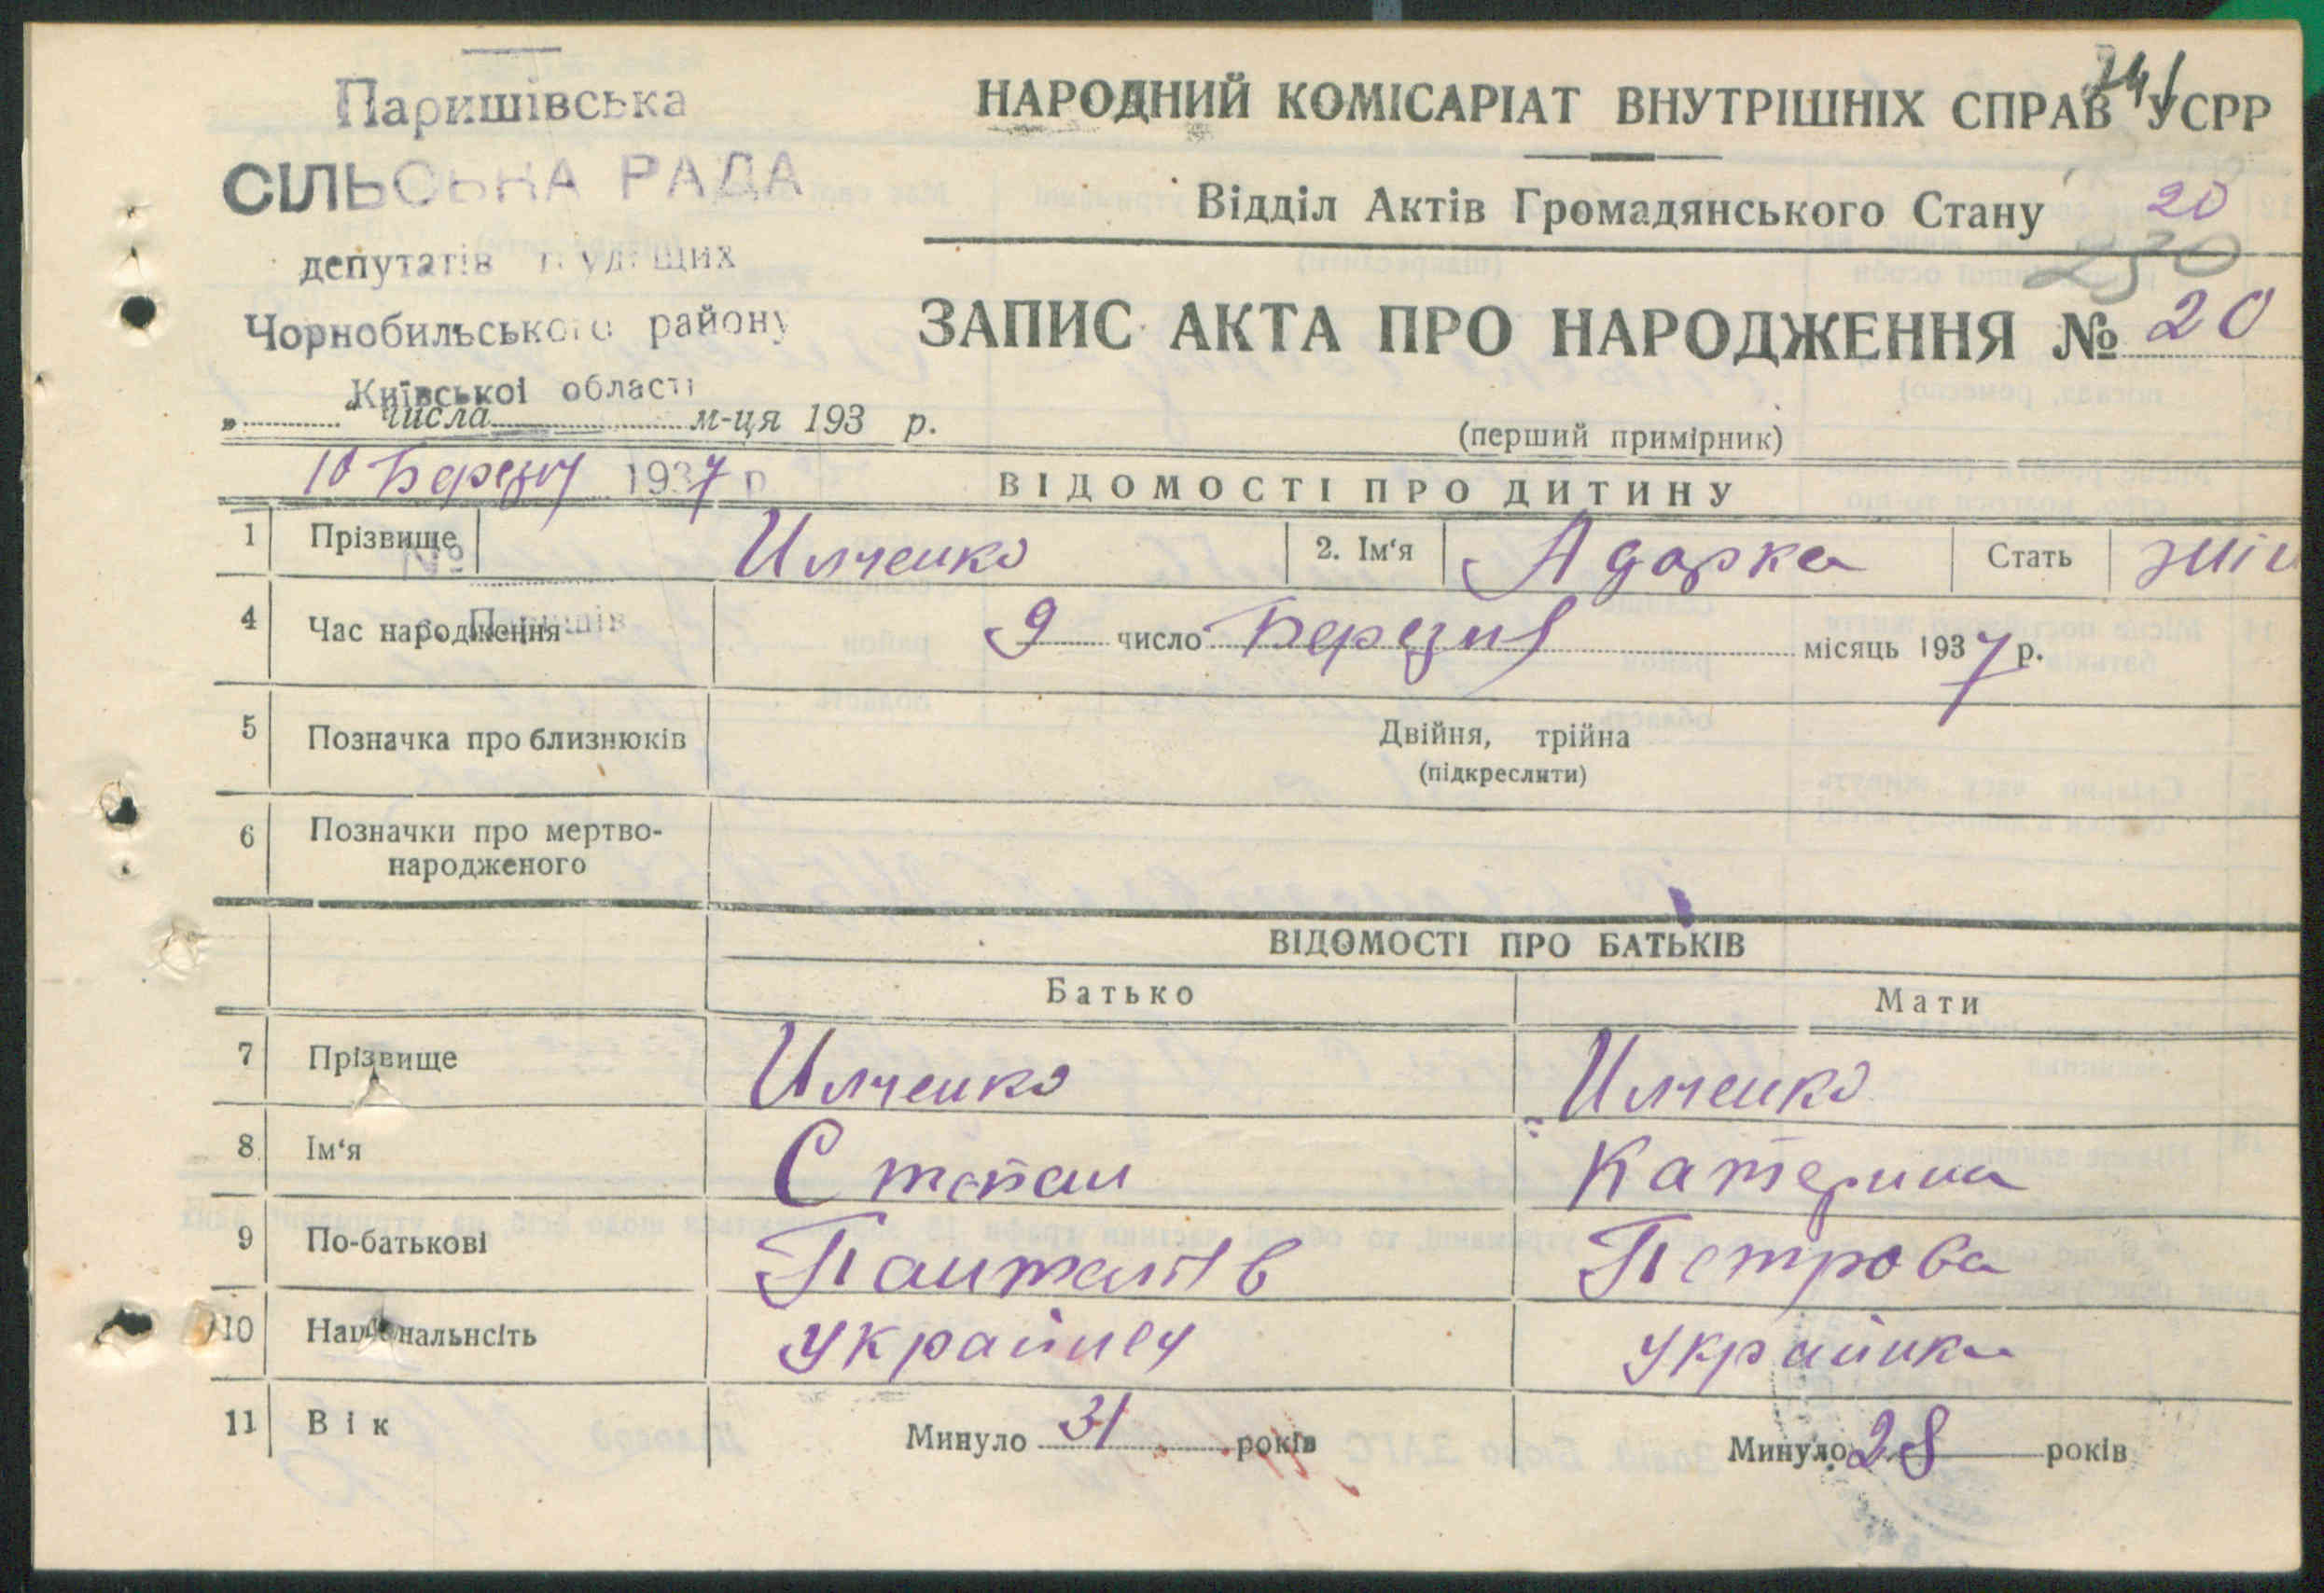 Паришівська
СІЛЬСЬКА РАДА
депутатів трудящих
Чорнобильського району
Київської області
„ “ числа м-ця 193 р.
10 Березня 1937 р
№
с. Паришів
241
НАРОДНИЙ КОМІСАРІАТ ВНУТРІШНІХ СПРАВ УСРР
Відділ Актів Громадянського Стану 20
230
ЗАПИС АКТА ПРО НАРОДЖЕННЯ № 20
(перший примірник)
ВІДОМОСТІ ПРО ДИТИНУ
1 Прізвище Илченко 2. Ім‘я Адарка Стать жін
4 Час народження 9 число Березня місяць 1937 р.
5 Позначка про близнюків Двійня, трійна
(підкреслити)
6 Позначки про мертво-
народженого
ВІДОМОСТІ ПРО БАТЬКІВ
Батько Мати
7 Прізвище Илченко Илченко
8 Ім‘я Степан Катерина
9 По-батькові Панталів Петрова
10 Національнсіть Украйнец Украйнка
11 Вік Минуло 31 років Минуло 28 років